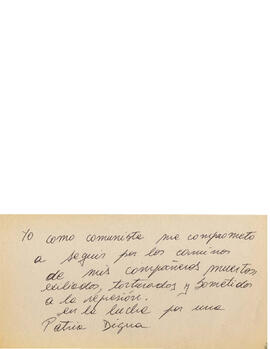 Yo como comunista me comprometo
a seguir por los caminos
de mis compañeros muertos,
exiliados, torturados y sometidos
a la represión.
en la lucha por una
Patria Digna